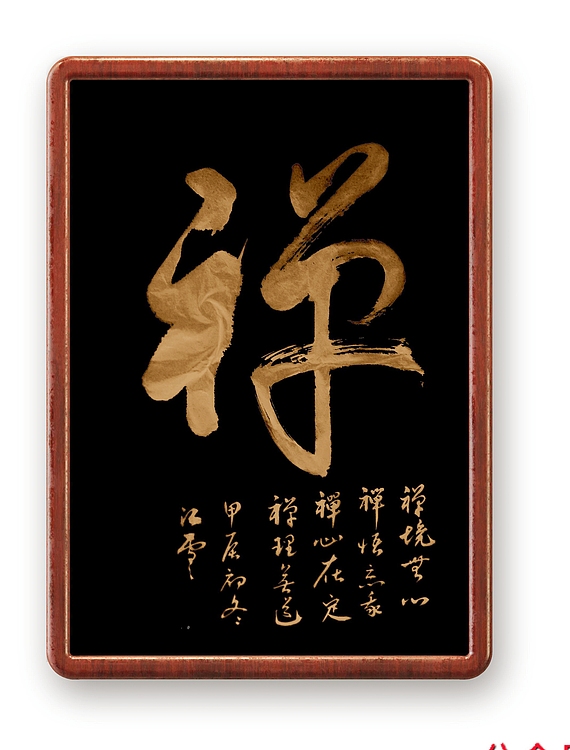 禅
禅境無心
禅悟忘我
禪心在定
禅理善道
甲辰初冬
江雪